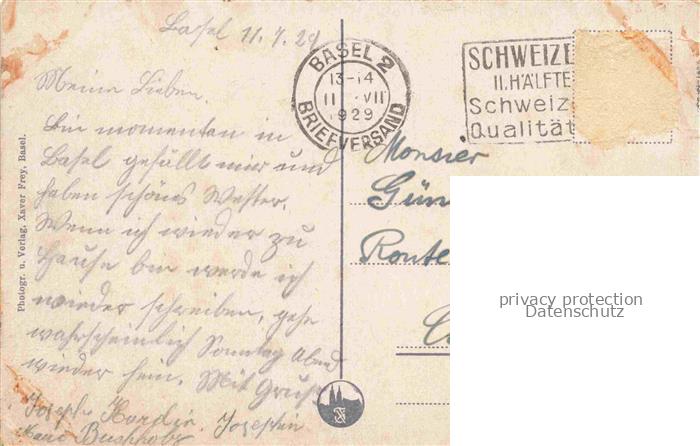 Basel 11.7.29
Meine Lieben.
Bin momentan in
Basel gefällt mir und
haben schönes Wetter.
Wenn ich wieder zu
Hause bin werde ich
wieder schreiben, gehe
wahrscheinlich Sonntag Abend
wieder heim. Mit Gruß
Joseph Josephin
Photogr. u. Verlag, Xaver Frey, Basel.
BASEL 2
13-14
11 VII
1929
BRIEFVERSAND
SCHWEIZE
II. HÄLFTE
Schweiz
Qualität
Monsier
Gün
Route
privacy protection
Datenschutz